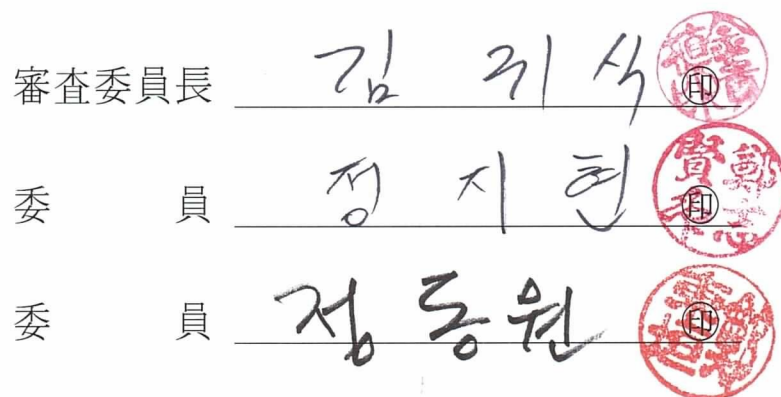 審査委員長 김 귀 식 印
委 員 정 지 현 印
委 員 정 동 원 印